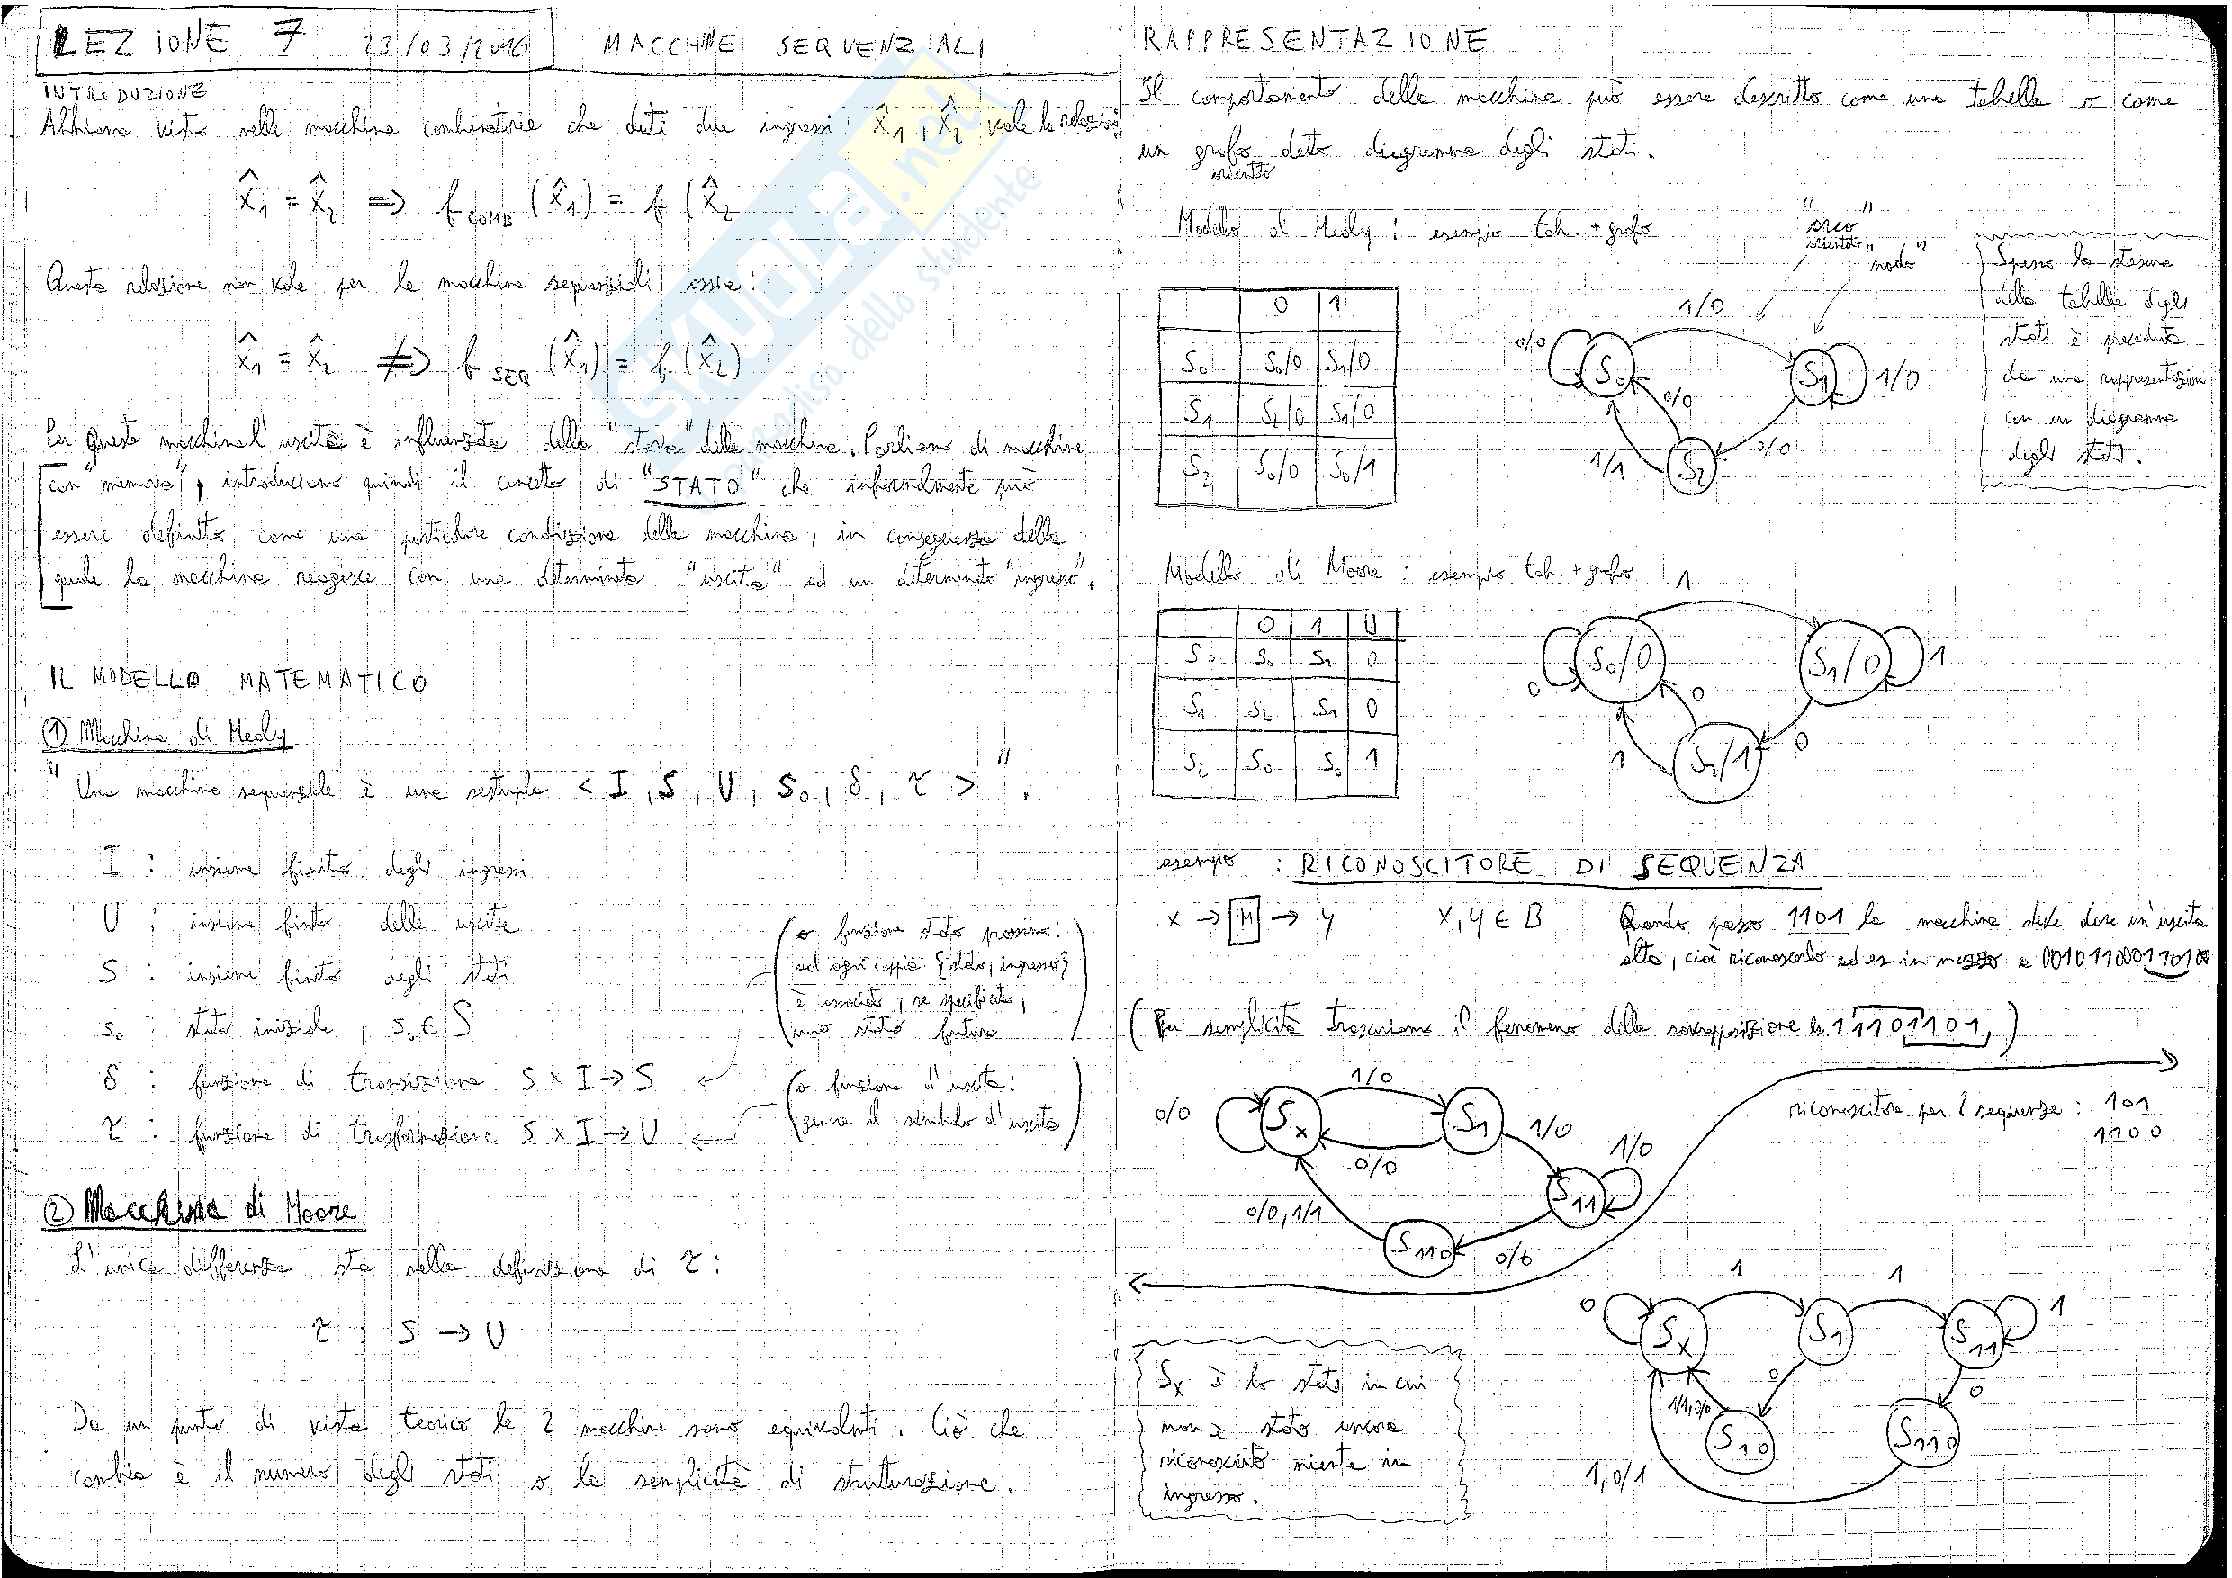 LEZIONE 7 23/03/2016 MACCHINE SEQUENZIALI
INTRODUZIONE
Abbiamo visto nelle macchine combinatorie che dati due ingressi x̂1, x̂2 vale la relazione
x̂1 = x̂2 => f COMB (x̂1) = f (x̂2
Questa relazione non vale per le macchine sequenziali, ossia:
x̂1 = x̂2 ≠> f SEQ (x̂1) = f (x̂2)
Per queste macchine l'uscita è influenzata dalla "storia" della macchina. Parliamo di macchine
con "memoria", introduciamo quindi il concetto di "STATO" che informalmente può
essere definito come una particolare condizione della macchina, in conseguenza della
quale la macchina reagisce con una determinata "uscita" ad un determinato "ingresso".
IL MODELLO MATEMATICO
① Macchina di Mealy
"Una macchina sequenziale è una sestupla < I, S, U, S0, δ, τ >".
I : insieme finito degli ingressi
U : insieme finito delle uscite
S : insieme finito degli stati
s0 : stato iniziale, s0 ∈ S
δ : funzione di transizione S x I → S ←
(o funzione stato prossimo:
ad ogni coppia {stato, ingresso}
è associato, se specificato,
uno stato futuro)
τ : funzione di trasformazione S x I → U ←
(o funzione d'uscita:
genera il simbolo d'uscita)
② Macchina di Moore
L'unica differenza sta nella definizione di τ:
τ : S → U
Da un punto di vista teorico le 2 macchine sono equivalenti. Ciò che
cambia è il numero degli stati o la semplicità di strutturazione.
RAPPRESENTAZIONE
Il comportamento delle macchine può essere descritto come una tabella o come
un grafo detto diagramma degli stati.
orientato
Modello di Mealy : esempio tab + grafo
"arco
orientato"
"nodo"
0 1
S0 S0/0 S1/0
S1 S2/0 S1/0
S2 S0/0 S0/1
0/0 S0 1/0 S1 1/0
0/0
1/1 S2 0/0
Spesso la stesura
della tabella degli
stati è preceduta
da una rappresentazion
con un diagramma
degli stati.
Modello di Moore : esempio tab + grafo
0 1 U
S0 S0 S1 0
S1 S2 S1 0
S2 S0 S0 1
1
S0/0 S1/0 1
0 0
1 S2/1 0
esempio : RICONOSCITORE DI SEQUENZA
x → M → y x, y ∈ B Quando passo 1101 la macchina deve dare un'uscita
alta, cioè riconoscerlo ad es in mezzo a
(Per semplicità trascuriamo il fenomeno della sovrapposizione)
1/0
0/0 Sx S1 1/0
0/0 1/0
S11
0/0, 1/1
S110 0/0
riconoscitore per 2 sequenze : 101
1100
1 1
0 Sx S1 S11 1
0 0
1/1, 0/0
S10 S110
1, 0/1
Sx è lo stato in cui
non è stato ancora
riconosciuto niente in
ingresso.
SKUOLA.net